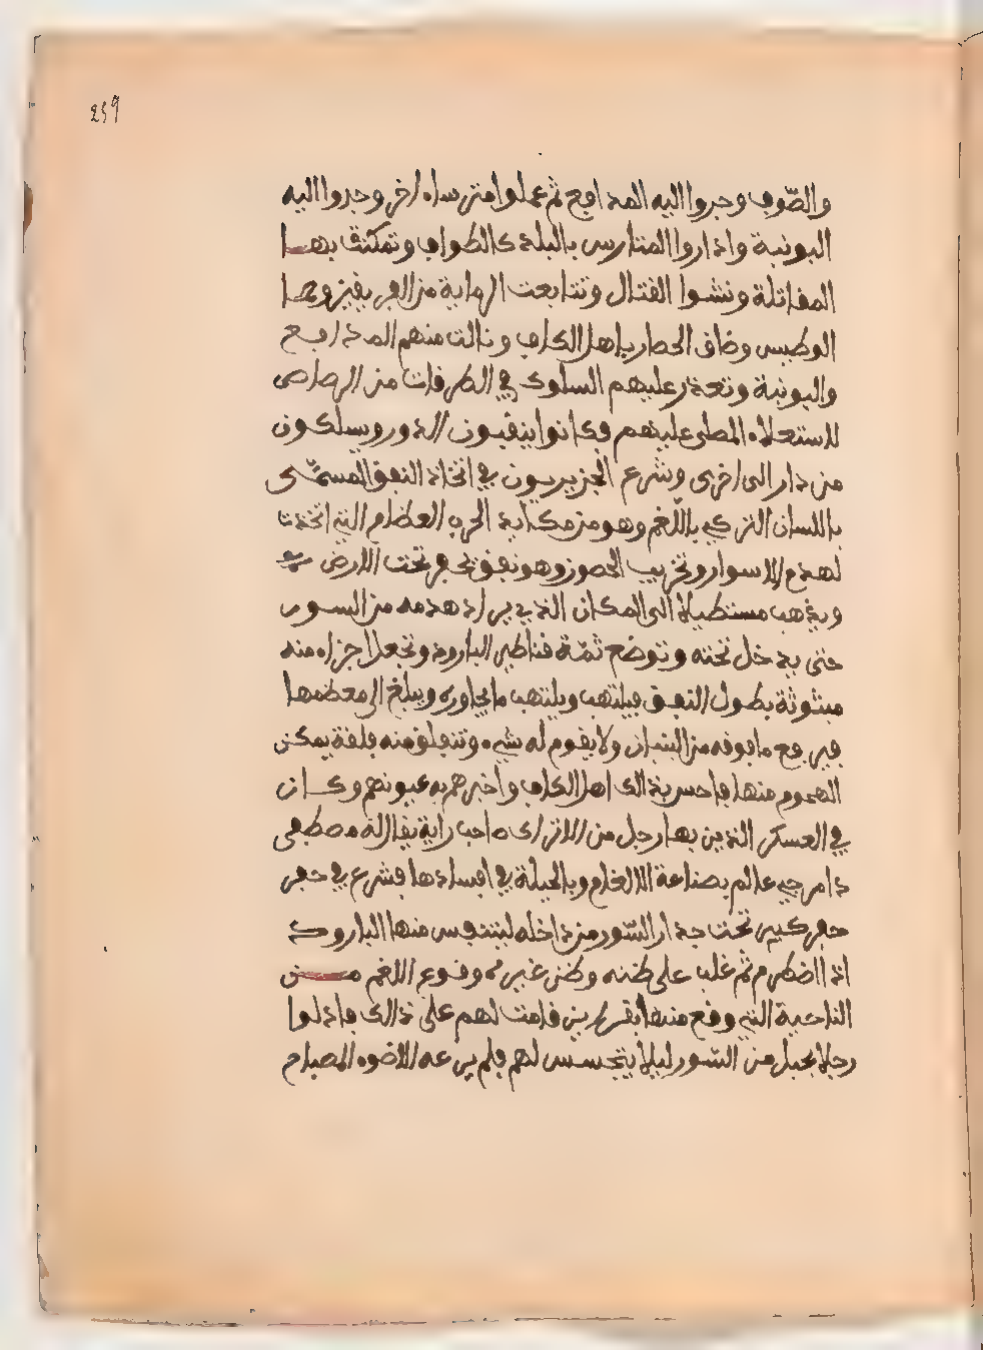 259
والصّوف وجروا اليه المدافع ثم عملوا متر ساه اخر وجروا اليه
البونبة واداروا المتارس بالبلد كالطواف وتمكنت بهـا
المقاتلة ونشوا القتال وتتابعت الرماية من الفريقين وحما
الوطيس وضاف الحصار باهل الكاف ونالت منهم المدافع
والبونبة وتعذر عليهم السلوك في الطرقات من الرصاص
لاستعلاء المطل عليهم فكانوا ينقبون الدور ويسلكون
من دار الى اخرى وشرع الجزيريون في اتخاذ النفق المسمّى
باللسان التركي باللّغم وهو من مكايد الحرب العظام التي اتخذت
لهدم الاسوار وتخريب الحصون وهو نفق يحفر تحت الارض
ويذهب مستطيلا الى المكان الذي يراد هدمه من السور
حتى يدخل تحته وتوضع ثمّة قناطير البارود وتجعل اجزاء منه
مبثوثة بطول النفق فيلتهب ويلتهب ما يجاوره ويبلغ الى معظمها
فيرفع ما فوفه من البنيان ولا يقوم له شيء وتنفلق منه فلقة يمكن
الهجوم منها فاحس بذالك اهل الكاف واخبرهم به عيونهم وكـان
في العسكر الذين بها رجل من الاتراك صاحب راية يقال له مصطفى
دامرجي عالم بصناعة الالغام وبالحيلة في افسادها فشرع في حفر
حفر كبير تحت جدار السّور من داخله ليتنفس منها البارود
اذا اضطرم ثم غلب على ظنه وظن غيره وقوع اللغم مـن
الناحية التي وقع منها بقراين قامت لهم على ذالك فادلوا
رجلا بحبل من السّور ليلا يتجسس لهم فلم يرعه الاضوء المصباح